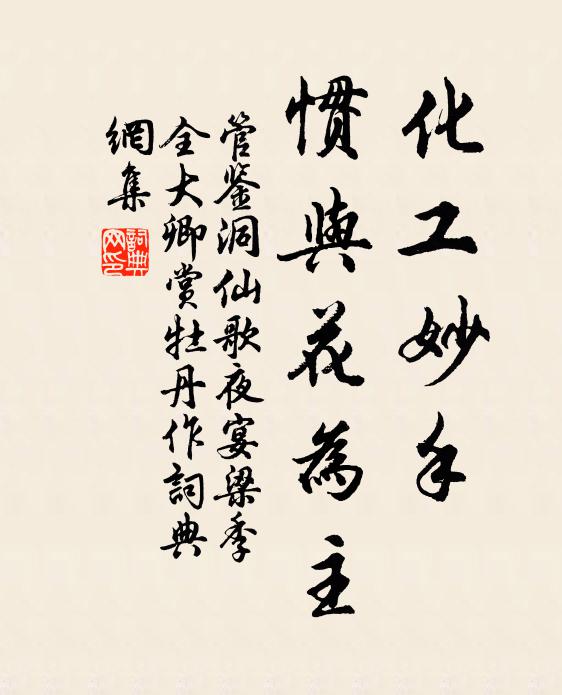 化工妙手
慣與花為主
管鉴洞仙歌夜宴梁季
全大卿賞牡丹作詞典
網集
詞典
网印